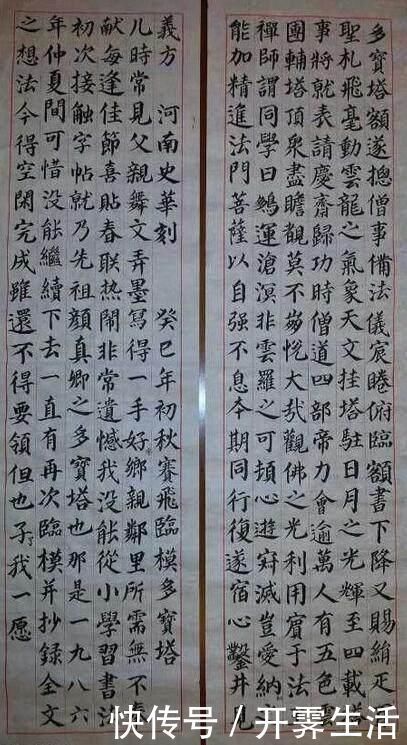 多寶塔額遂摠僧事備法儀宸睠俯臨額書下降又賜絹疋
聖札飛毫動雲龍之氣象天文挂塔駐日月之光輝至四載塔
事將就表請慶齋歸功時僧道四部帝力會逾萬人有五色雲
團輔塔頂衆盡瞻觀莫不崩悅大哉觀佛之光利用賓于法
禪師謂同學曰鵬運滄溟非雲羅之可頓心遊寂滅豈愛納之
能加精進法門菩薩以自强不息夲期同行復遂宿心鑿井見
義方 河南史華刻 癸巳年初秋賽飛臨模多寶塔
儿時常見父親舞文弄墨寫得一手好鄉親鄰里所需無不奉
献每逢佳節喜貼春联热鬧非常遺憾我没能從小學習書法
初次接触字帖就乃先祖顔真卿之多寶塔也那是一九八六
年仲夏間可惜没能繼續下去一直有再次臨模并抄録全文
之想法今得空閑完成雖還不得要領但也了我一愿
快传号/开霁生活